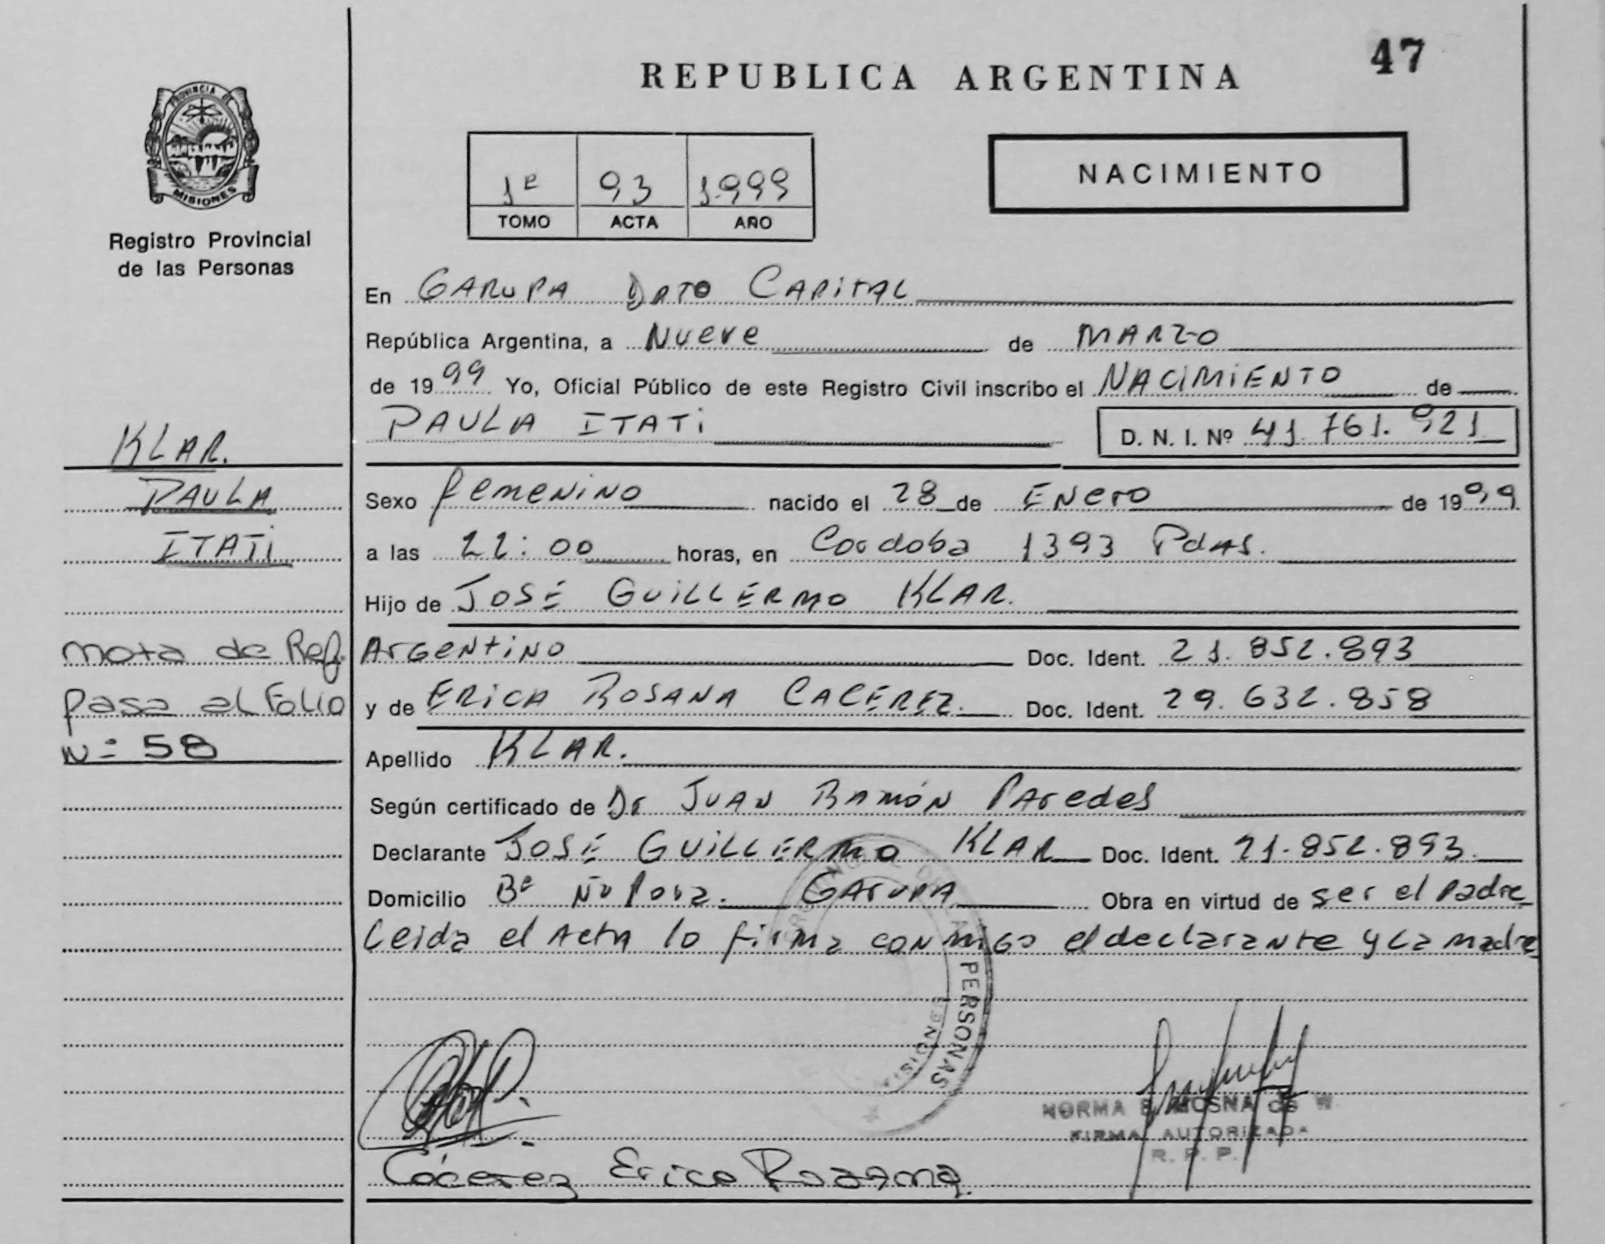 47
REPUBLICA ARGENTINA
PROVINCIA DE
MISIONES
Registro Provincial
de las Personas
1º 93 1.999
TOMO ACTA AÑO
NACIMIENTO
En GARUPA DPTO CAPITAL
República Argentina, a Nueve de MARZO
de 19 99 Yo, Oficial Público de este Registro Civil inscribo el NACIMIENTO de
PAULA ITATI D. N. I. Nº 41.761.921
KLAR.
PAULA
ITATI
Sexo femenino nacido el 28 de Enero de 19 99
a las 22:00 horas, en Cordoba 1393 Pdas.
Hijo de JOSÉ GUILLERMO KLAR.
Argentino Doc. Ident. 21.852.893
y de ERICA ROSANA CACEREZ. Doc. Ident. 29.632.858
nota de Ref.
pasa al Folio
Nº 58
Apellido KLAR.
Según certificado de Dr JUAN RAMÓN PAredes
Declarante JOSÉ GUILLERMO KLAR Doc. Ident. 21.852.893.
Domicilio Bº Ñu Pora. GArupA Obra en virtud de ser el padre
Leida el Acta lo firma conmigo el declarante y la madre
PERSONAS
MISIONES
NORMA B. MOSNA de W.
FIRMA AUTORIZADA
R. P. P.
Cácerez Erica Rosana